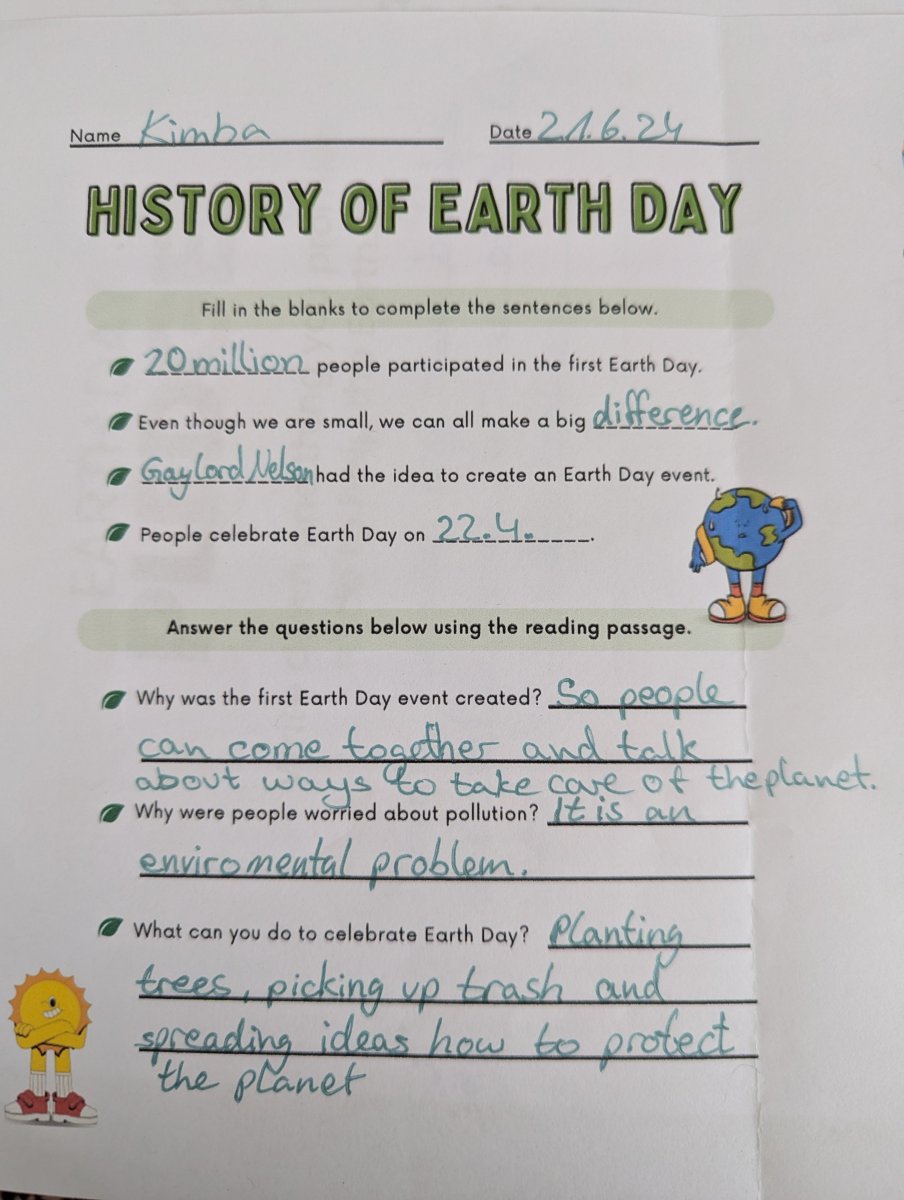 Name Kimba Date 21.6.24
HISTORY OF EARTH DAY
Fill in the blanks to complete the sentences below.
20 million people participated in the first Earth Day.
Even though we are small, we can all make a big difference.
Gaylord Nelson had the idea to create an Earth Day event.
People celebrate Earth Day on 22.4.
Answer the questions below using the reading passage.
Why was the first Earth Day event created? So people
can come together and talk
about ways to take care of the planet.
Why were people worried about pollution? It is an
enviromental problem.
What can you do to celebrate Earth Day? Planting
trees, picking up trash and
spreading ideas how to protect
the planet